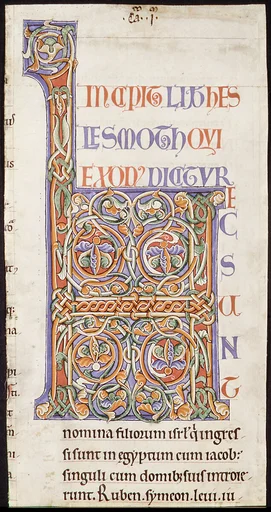 INCIPIT LIB HES
LESMOTH QVI
EXOD' DICITVR
HEC SUNT
nomina filiorum isrl' q̇ ingres
si sunt in egyptum cum iacob:
singuli cum domib; suis introie
runt. Ruben. symeon. leui. iu